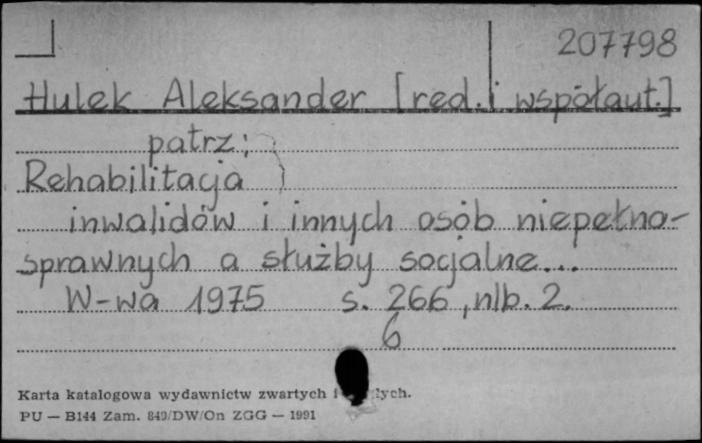 207798
Hulek Aleksander [red. i współaut.]
patrz:
Rehabilitacja
inwalidów i innych osób niepełno-
sprawnych a służby socjalne...
W-wa 1975 s. 266, nlb. 2.
6
Karta katalogowa wydawnictw zwartych i
PU — B144 Zam. 849/DW/On ZGG — 1991